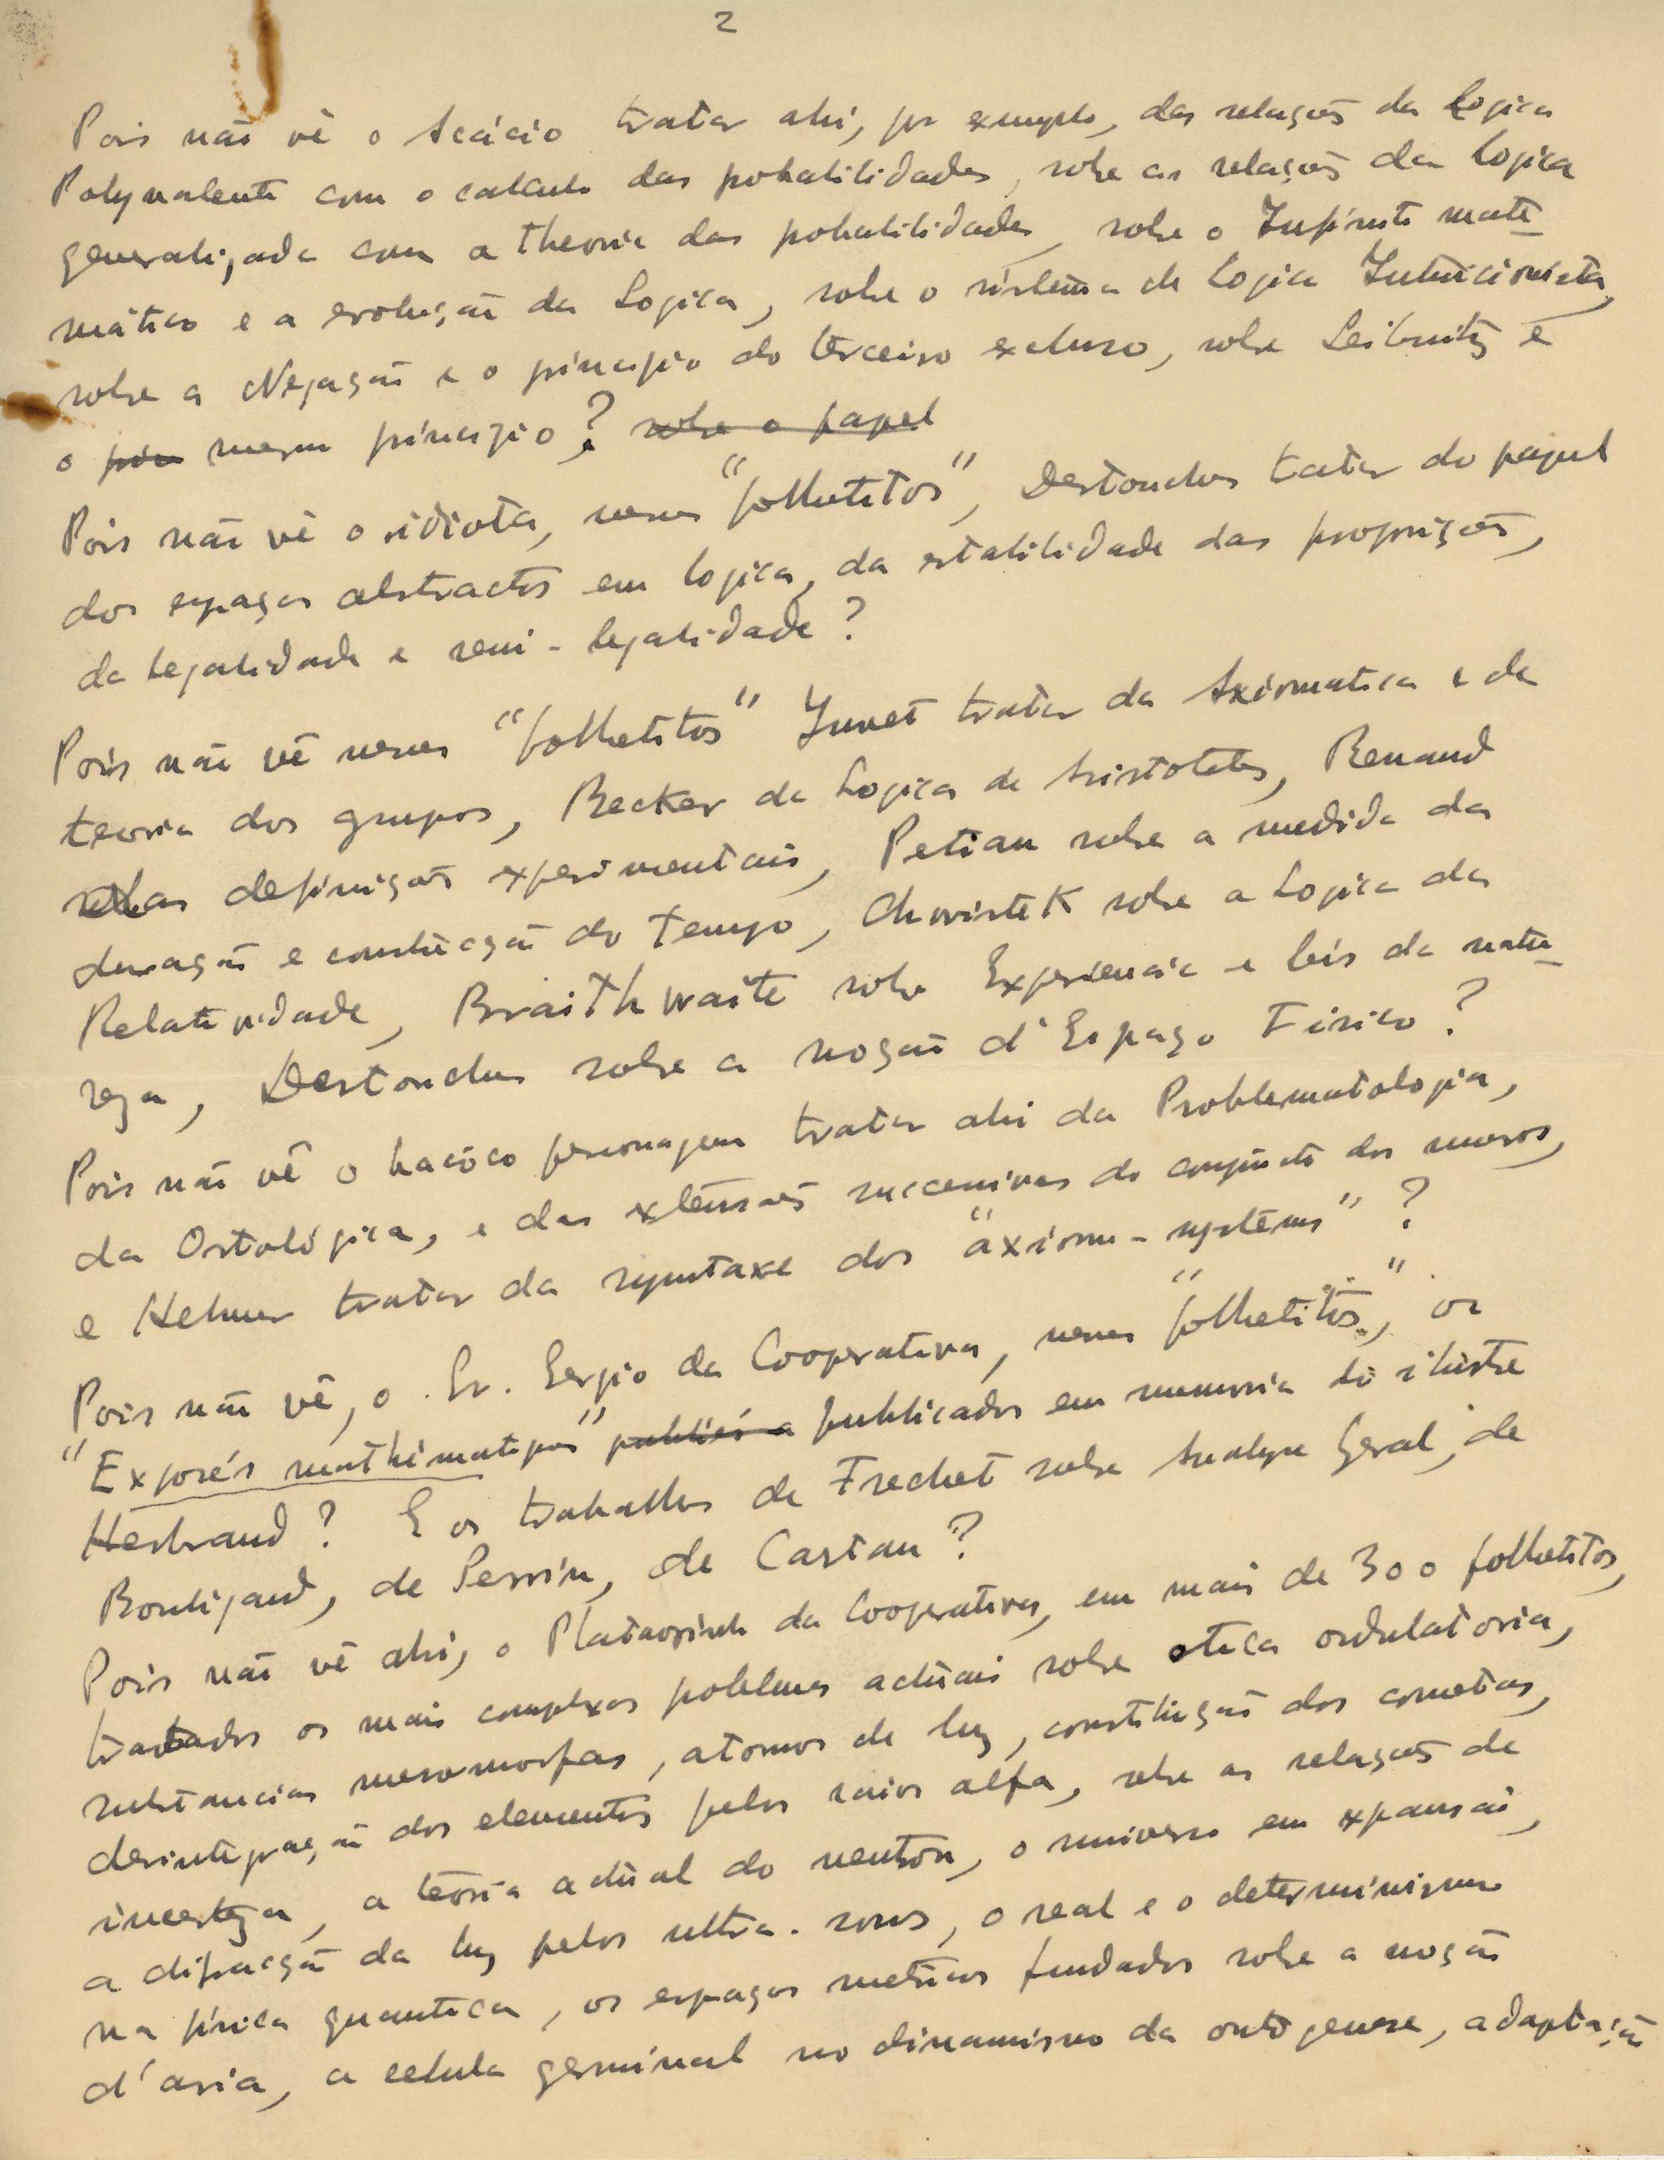 2
Pois não vê o Acácio tratar ahi, por exemplo, das relações da Logica
Polyvalente com o calculo das probabilidades, sobre as relações da Logica
generalizada com a theoria das probabilidades, sobre o Infinito mate-
mático e a evolução da Logica, sobre o sistema de Logica Intuicionista,
sobre a Negação e o principio do terceiro excluso, sobre Leibnitz e
o prin mesmo principio? sobre o papel
Pois não vê o idiota, nesses "folhetitos", Destouches tratar do papel
dos espaços abstractos em logica, da estabilidade das proposições,
da legalidade e semi-legalidade?
Pois não vê nesses "folhetitos" Juvet tratar da Axiomatica e da
teoria dos grupos, Becker da Logica de Aristoteles, Renaud
das definições experimentais, Petiau sobre a medida da
duração e construcção do tempo, Chwistek sobre a Logica da
Relatividade, Braithwaite sobre Experiencia e leis da natu-
reza, Destouches sobre a noção d'Espaço Fisico?
Pois não vê o bacôco personagem tratar ahi da Problematologia,
da Ortológica, e das extensões successivas do conjunto dos numeros,
e Helmer tratar da syntaxe dos "axiom-systems"?
Pois não vê, o Sr. Sergio da Cooperativa, nesses "folhetitos", os
"Exposés mathématiques" publiés a publicados em memoria do ilustre
Herbrand? E os trabalhos de Frechet sobre Analyse Geral, de
Bouligand, de Perrin, de Cartan?
Pois não vê ahi, o Plataosinho da Cooperativa, em mais de 300 folhetitos,
tratados os mais complexos problemas actuais sobre otica ondulatoria,
substancias mesomorfas, atomos de luz, constituição dos cometas,
desintegração dos elementos pelos raios alfa, sobre as relações de
incerteza, a teoria actual do neutron, o universo em expansão,
a difracção da luz pelos ultra-sons, o real e o determinismo
na fisica quantica, os espaços metricos fundados sobre a noção
d'aria, a celula germinal no dinamismo da ontogenese, adaptação